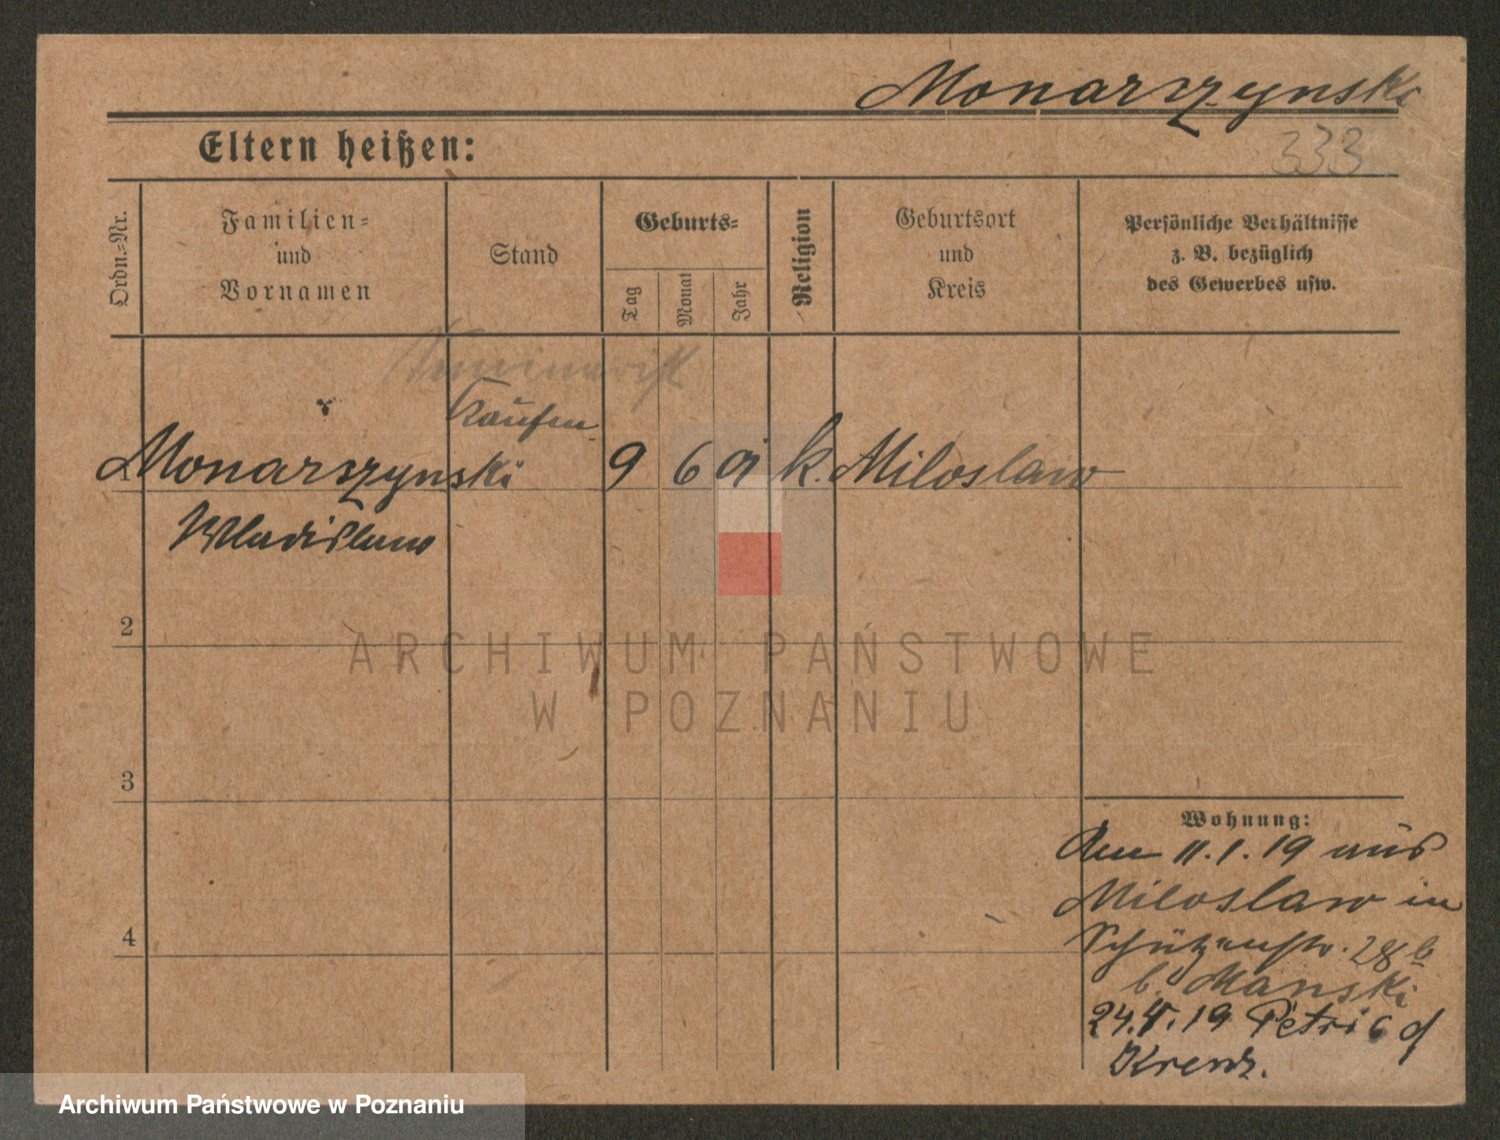 Monarszynski
333
Eltern heißen:
Ordn.-Nr.
Familien-
und
Vornamen
Stand
Geburts-
Tag
Monat
Jahr
Religion
Geburtsort
und
Kreis
Persönliche Verhältnisse
z. B. bezüglich
des Gewerbes usw.
Seminarist
Kaufm.
1 Monarszynski 9 6 01 k. Miloslaw
Wladislaus
2
3
4
ARCHIWUM PAŃSTWOWE
W POZNANIU
Wohnung:
Am 11.1.19 aus
Miloslaw in
Schützenstr. 28 b
b. Manski
24.V.19 Petri 6
Krenz.
Archiwum Państwowe w Poznaniu